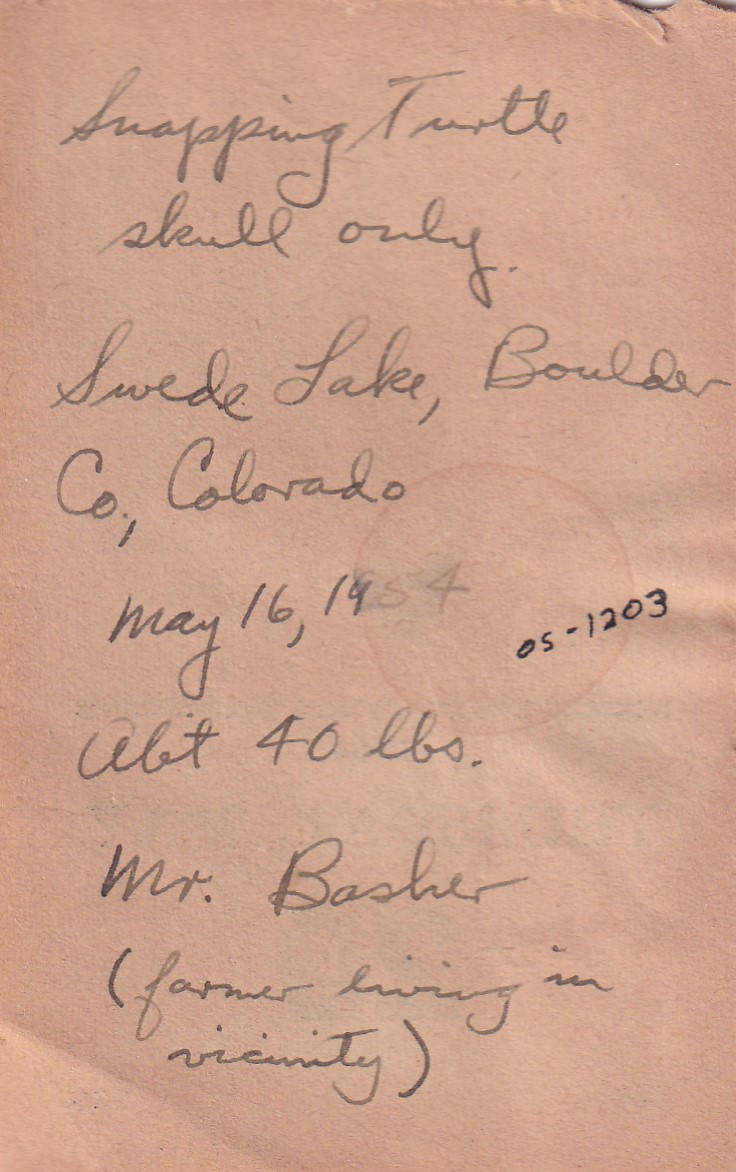 Snapping Turtle
skull only.
Swede Lake, Boulder
Co., Colorado
May 16, 1954
05-1203
Abt 40 lbs.
Mr. Basher
(farmer living in
vicinity)